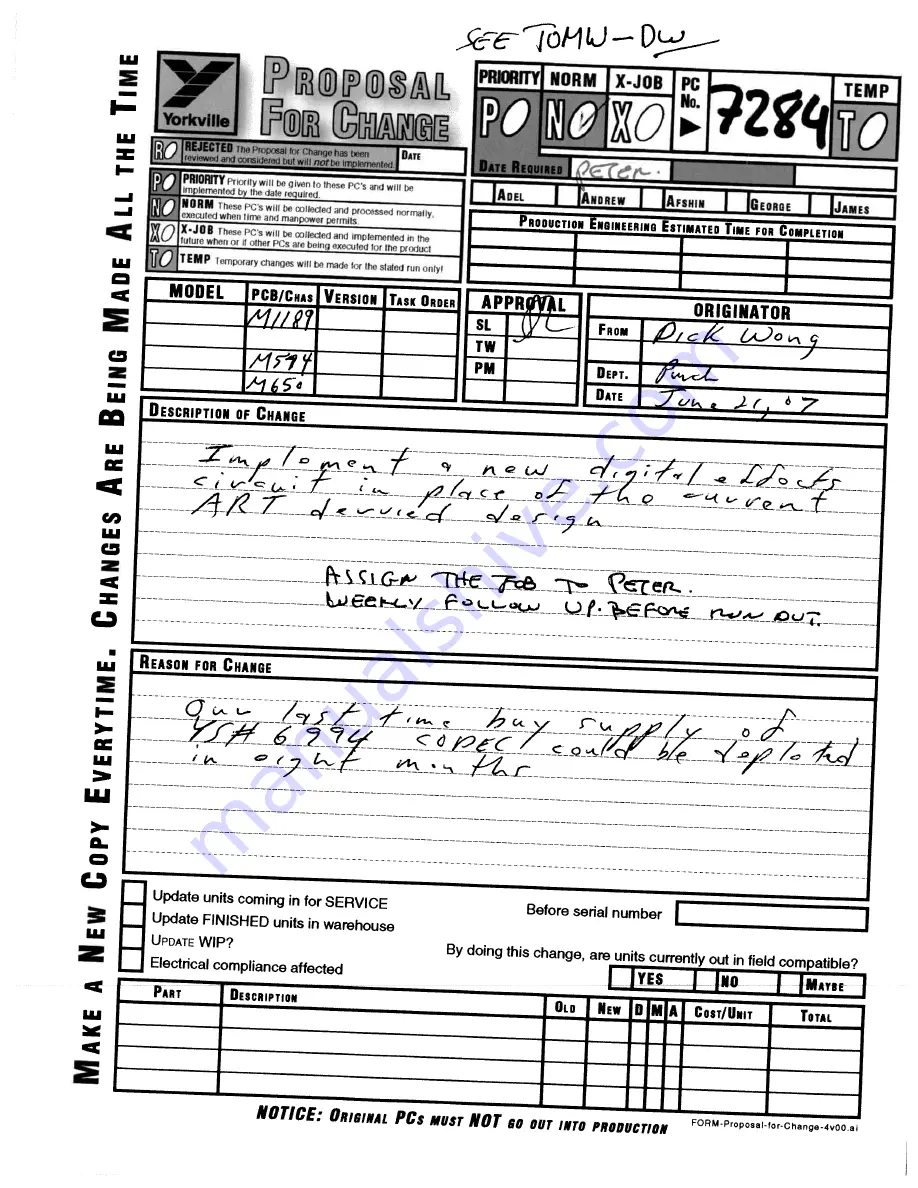 SEE TOMW-DW
MAKE A NEW COPY EVERYTIME. CHANGES ARE BEING MADE ALL THE TIME
Yorkville
PROPOSAL
FOR CHANGE
PRIORITY NORM X-JOB PC No. 7284 TEMP
P N X T
R REJECTED The Proposal for Change has been
reviewed and considered but will not be implemented.
DATE
DATE REQUIRED PETER.
P PRIORITY Priority will be given to these PC's and will be
implemented by the date required.
N NORM These PC's will be collected and processed normally,
executed when time and manpower permits.
X X-JOB These PC's will be collected and implemented in the
future when or if other PCs are being executed for the product
T TEMP Temporary changes will be made for the stated run only!
ADEL ANDREW AFSHIN GEORGE JAMES
PRODUCTION ENGINEERING ESTIMATED TIME FOR COMPLETION
MODEL PCB/CHAS VERSION TASK ORDER
M1189
M594
M650
APPROVAL
SL
TW
PM
ORIGINATOR
FROM Dick Wong
DEPT. Purch
DATE June 21, 07
DESCRIPTION OF CHANGE
Implement a new digital effects
circuit in place of the current
ART dervied design
ASSIGN THE JOB TO PETER.
WEEKLY FOLLOW UP. BEFORE RUN OUT.
REASON FOR CHANGE
Our last time buy supply of
YS# 6994 CODEC could be depleted
in eight months
Update units coming in for SERVICE
Before serial number
Update FINISHED units in warehouse
UPDATE WIP?
By doing this change, are units currently out in field compatible?
Electrical compliance affected
YES NO MAYBE
PART DESCRIPTION OLD NEW D M A COST/UNIT TOTAL
NOTICE: ORIGINAL PCS MUST NOT GO OUT INTO PRODUCTION
FORM-Proposal-for-Change-4v00.ai
manualshive.com